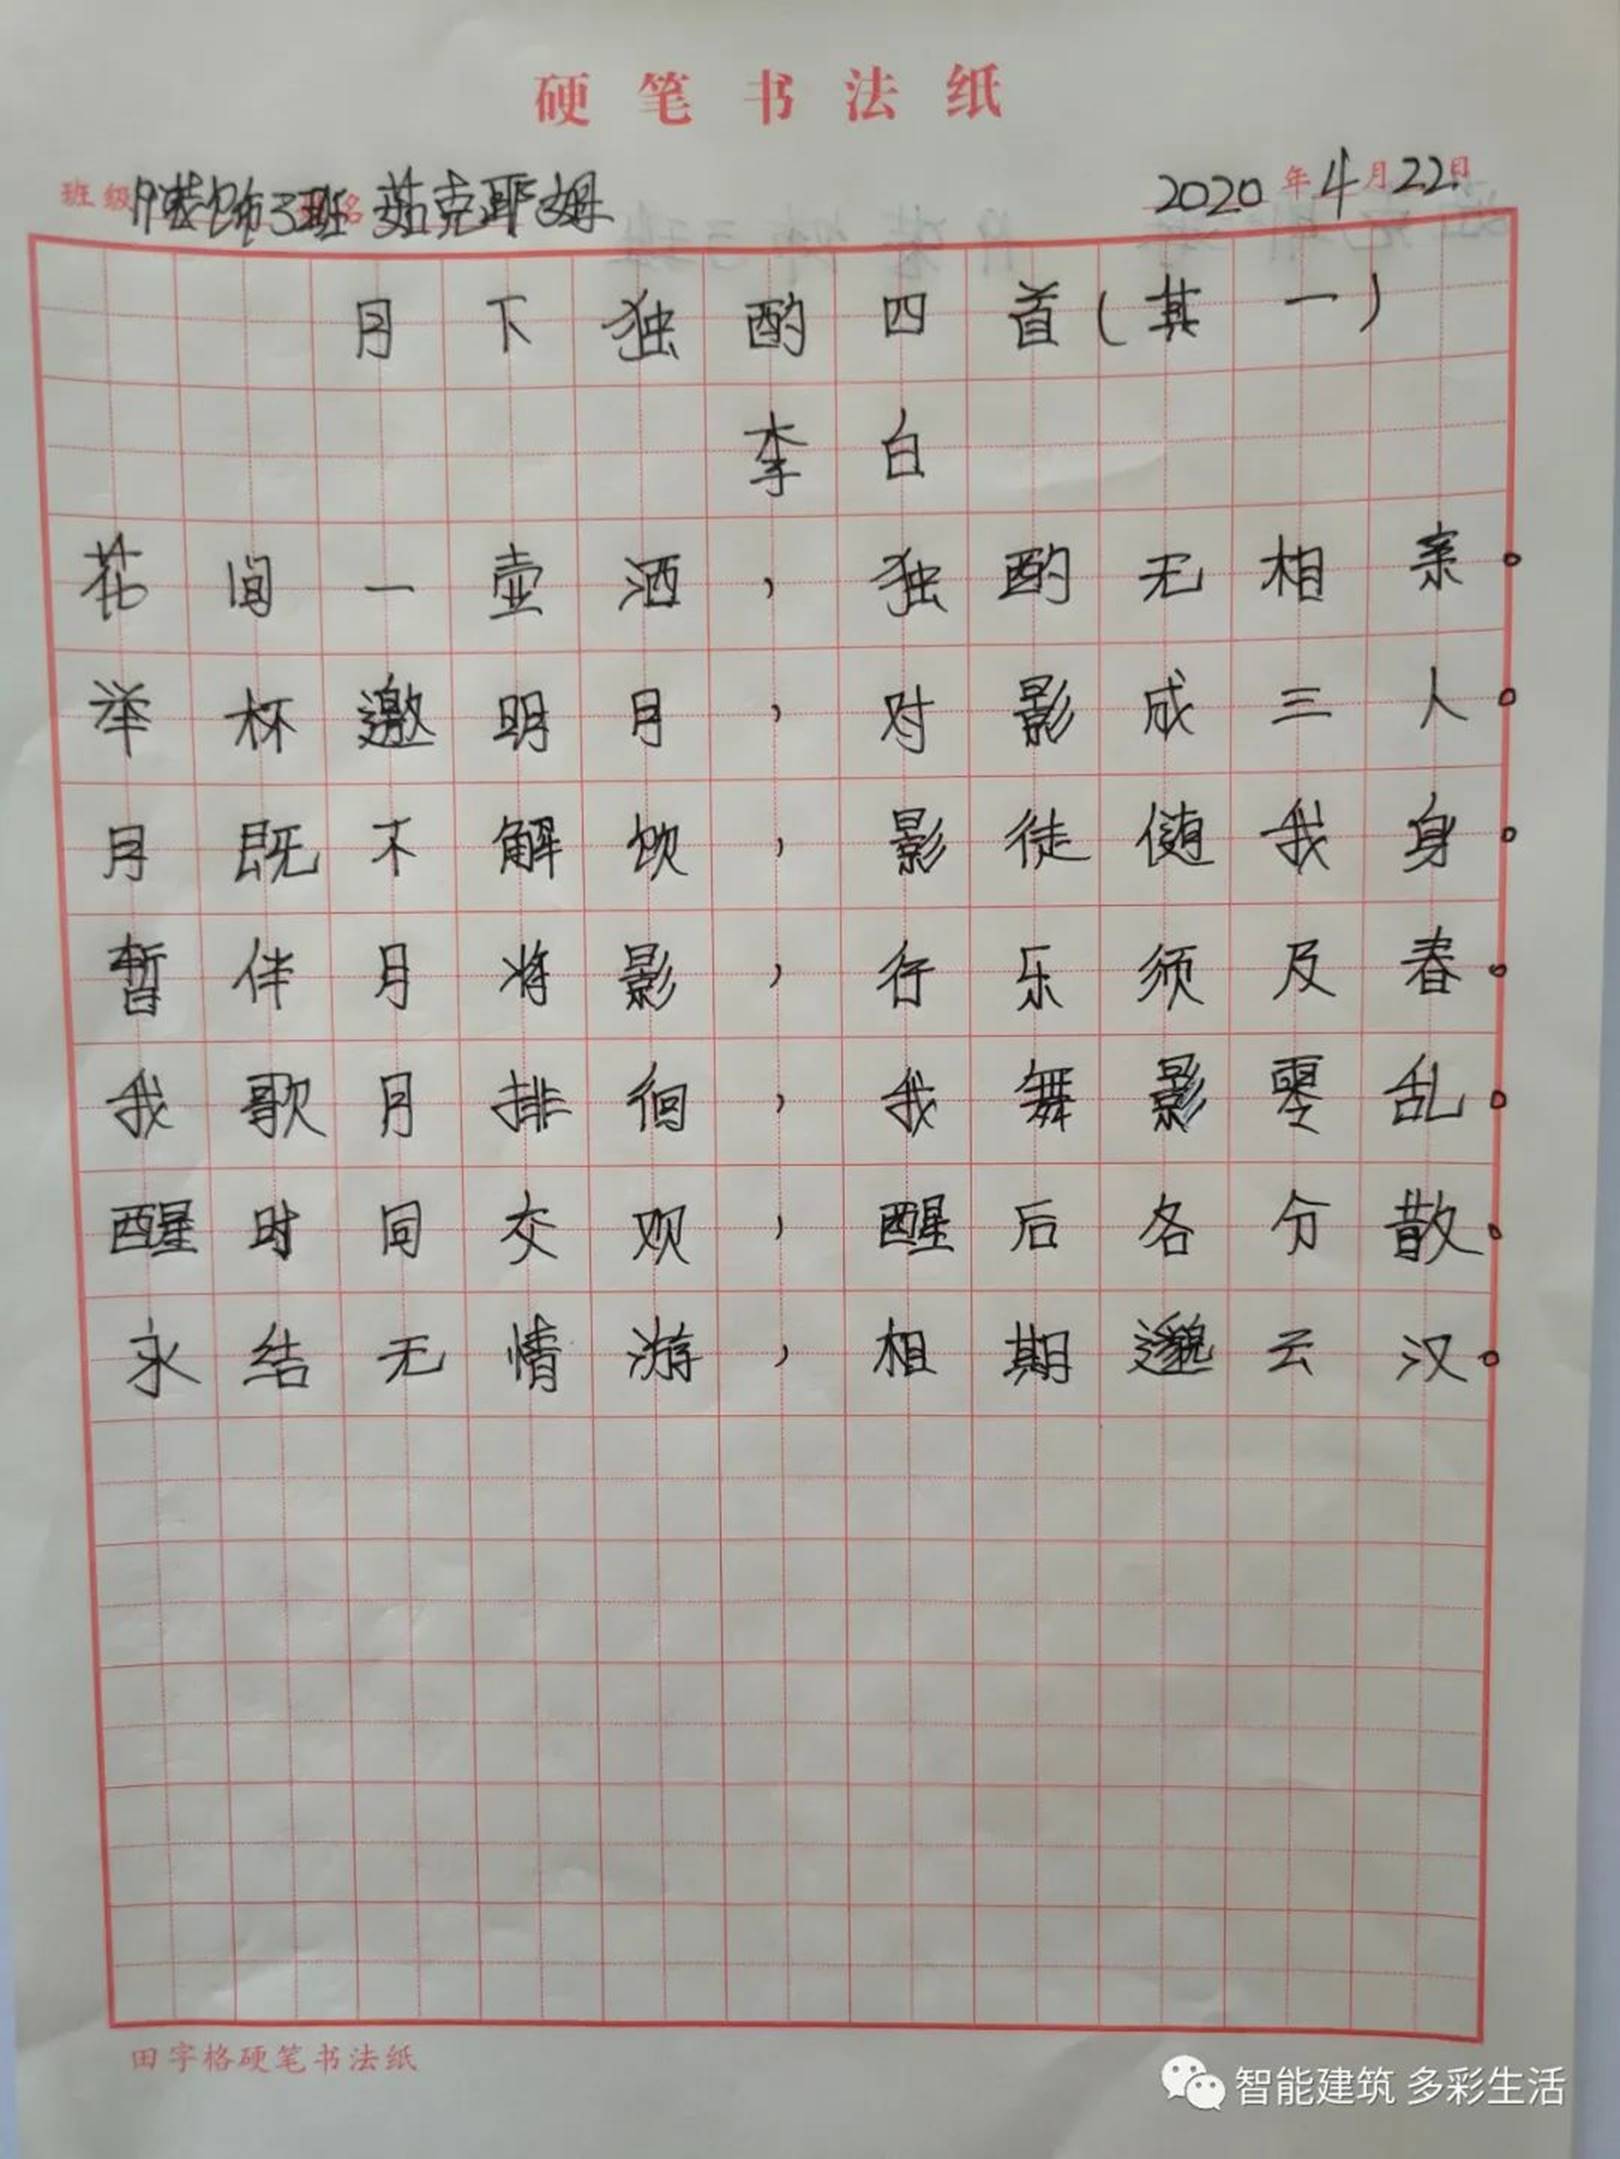 硬笔书法纸
班级 装饰3班 茹克耶姆 2020年4月22日
月下独酌四首(其一)
李白
花间一壶洒，独酌无相亲。
举杯邀明月，对影成三人。
月既不解饮，影徒随我身。
暂伴月将影，行乐须及春。
我歌月排徊，我舞影零乱。
醒时同交欢，醒后各分散。
永结无情游，相期邈云汉。
田字格硬笔书法纸
智能建筑 多彩生活